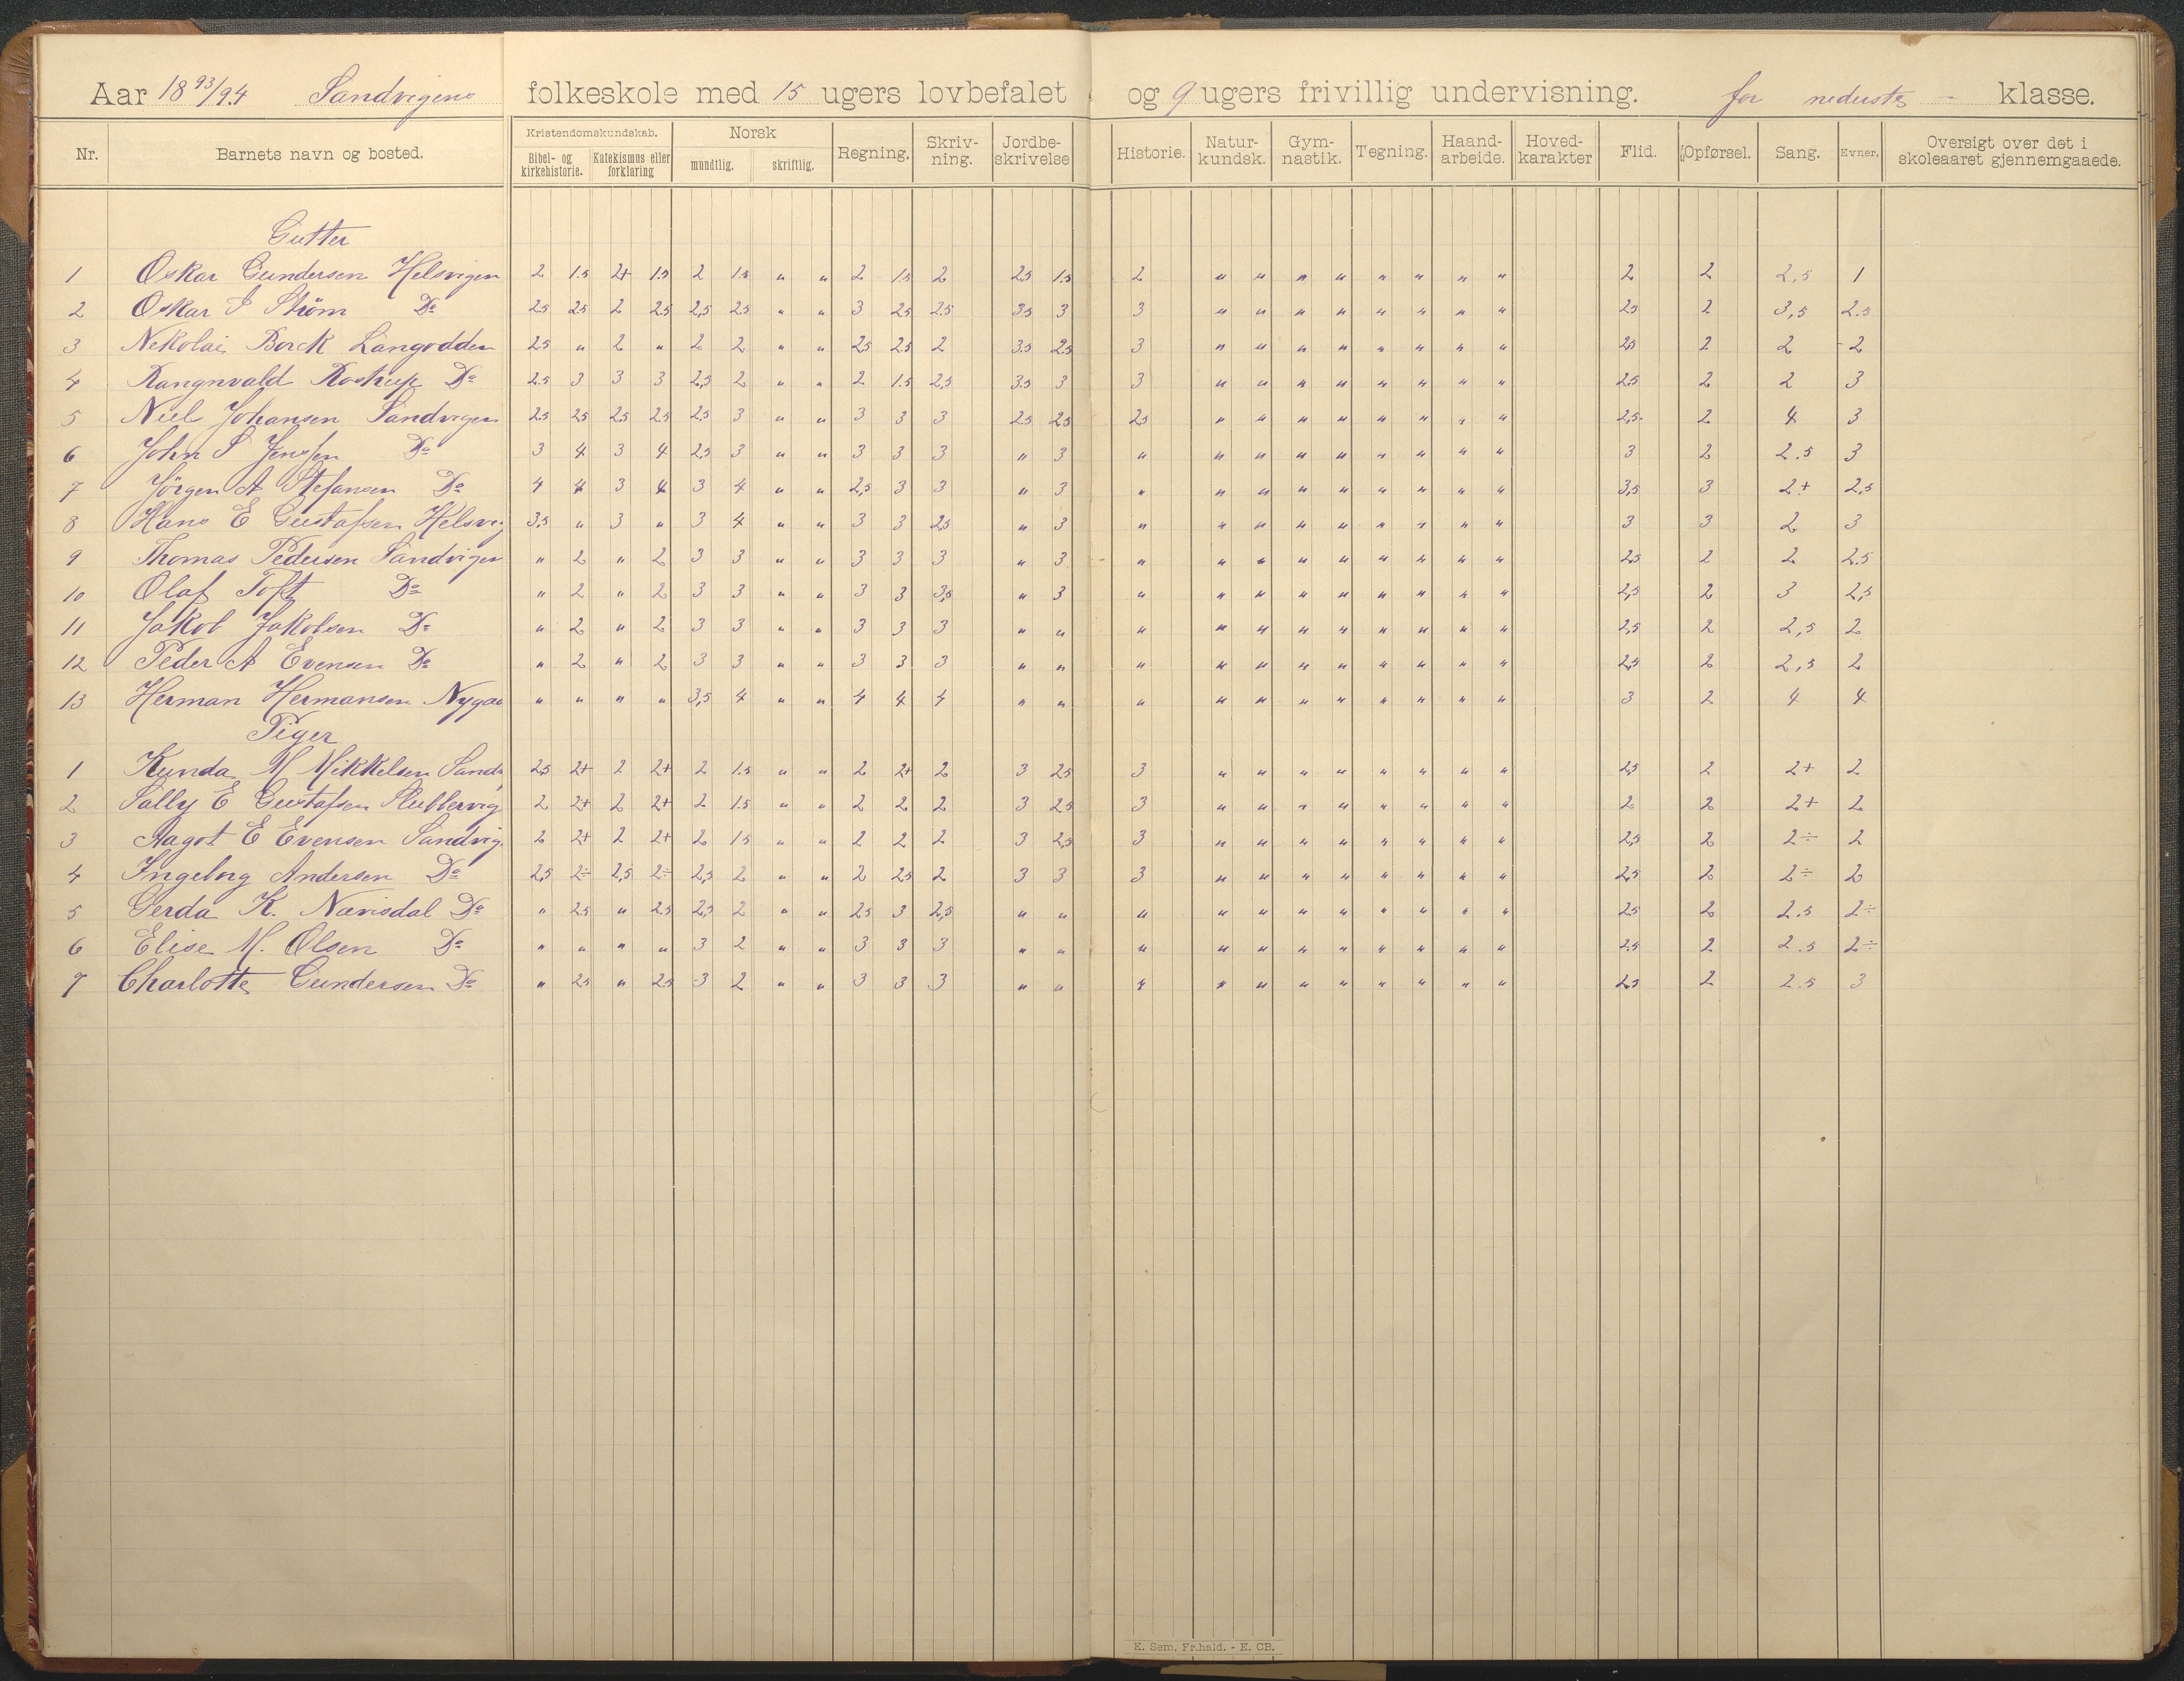 Aar 18 93/94 Sandvigens folkeskole med 15 ugers lovbefalet og 9 ugers frivillig undervisning. for nederste klasse.
Nr. Barnets navn og bosted. Kristendomskundskab. Bibel- og kirkehistorie. Katekismus eller forklaring Norsk mundtlig. skriftlig. Regning. Skriv-ning. Jordbe-skrivelse Historie. Natur-kundsk. Gym-nastik. Tegning. Haand-arbeide. Hoved-karakter Flid. Opførsel. Sang. Evner. Oversigt over det i skoleaaret gjennemgaaede.
Gutter
1 Oskar Gundersen Helsvigen 2 1.5 2+ 1.5 2 1.5 " " 2 1.5 2 2.5 1.5 2 " " " " " " " " 2 2 2,5 1
2 Oskar S Strøm Do 2.5 2.5 2 2.5 2,5 2.5 " " 3 2.5 2.5 3.5 3 3 " " " " " " " " 2.5 2 3,5 2.5
3 Nekolai Borck Langodden 2.5 " 2 " 2 2 " " 2.5 2.5 2 3.5 2.5 3 " " " " " " " " 2.5 2 2 2
4 Rangnvald Kostrup Do 2.5 3 3 3 2,5 2 " " 2 1.5 2,5 3.5 3 3 " " " " " " " " 2.5 2 2 3
5 Niel Johansen Sandvigen 2.5 2.5 2.5 2.5 2.5 3 " " 3 3 3 2.5 2.5 2.5 " " " " " " " " 2,5 2 4 3
6 John S Jenssen Do 3 4 3 4 2,5 3 " " 3 3 3 " 3 " " " " " " " " " 3 2 2.5 3
7 Jörgen A Stefansen Do 4 4 3 4 3 4 " " 2,5 3 3 " 3 " " " " " " " " " 3,5 3 2+ 2,5
8 Hans E Gustafsen Helsvig 3,5 " 3 " 3 4 " " 3 3 2,5 " 3 " " " " " " " " " 3 3 2 3
9 Thomas Pedersen Sandvigen " 2 " 2 3 3 " " 3 3 3 " 3 " " " " " " " " " 2.5 2 2 2.5
10 Olaf Toft Do " 2 " 2 3 3 " " 3 3 3,5 " 3 " " " " " " " " " 2,5 2 3 2,5
11 Jakob Jakobsen Do " 2 " 2 3 3 " " 3 3 3 " " " " " " " " " " " 2,5 2 2,5 2
12 Peder A Evensen Do " 2 " 2 3 3 " " 3 3 3 " " " " " " " " " " " 2,5 2 2,5 2
13 Herman Hermansen Nygaa " " " " 3,5 4 " " 4 4 4 " " " " " " " " " " " 3 2 4 4
Piger
1 Kunda M Mikkelsen Sandv 2,5 2+ 2 2+ 2 1.5 " " 2 2+ 2 3 2.5 3 " " " " " " " " 2,5 2 2+ 2
2 Sally E Gustafsen Slubbervig 2 2+ 2 2+ 2 1.5 " " 2 2 2 3 2.5 3 " " " " " " " " 2 2 2+ 2
3 Aagot E Evensen Sandvig 2 2+ 2 2+ 2 1.5 " " 2 2 2 3 2,5 3 " " " " " " " " 2,5 2 2÷ 2
4 Ingeborg Andersen Do 2,5 2÷ 2,5 2÷ 2,5 2 " " 2 2.5 2 3 3 3 " " " " " " " " 2.5 2 2÷ 2
5 Gerda K. Nævisdal Do " 2.5 " 2.5 2,5 2 " " 2.5 3 2,5 " " " " " " " " " " " 2.5 2 2.5 2÷
6 Elise M. Olsen Do " " " " 3 2 " " 3 3 3 " " " " " " " " " " " 2.5 2 2.5 2÷
7 Charlotte Gundersen Do " 2.5 " 2.5 3 2 " " 3 3 3 " " " " " " " " " " " 2.5 2 2.5 3
E. Sem, Fr.hald. - E. CB.